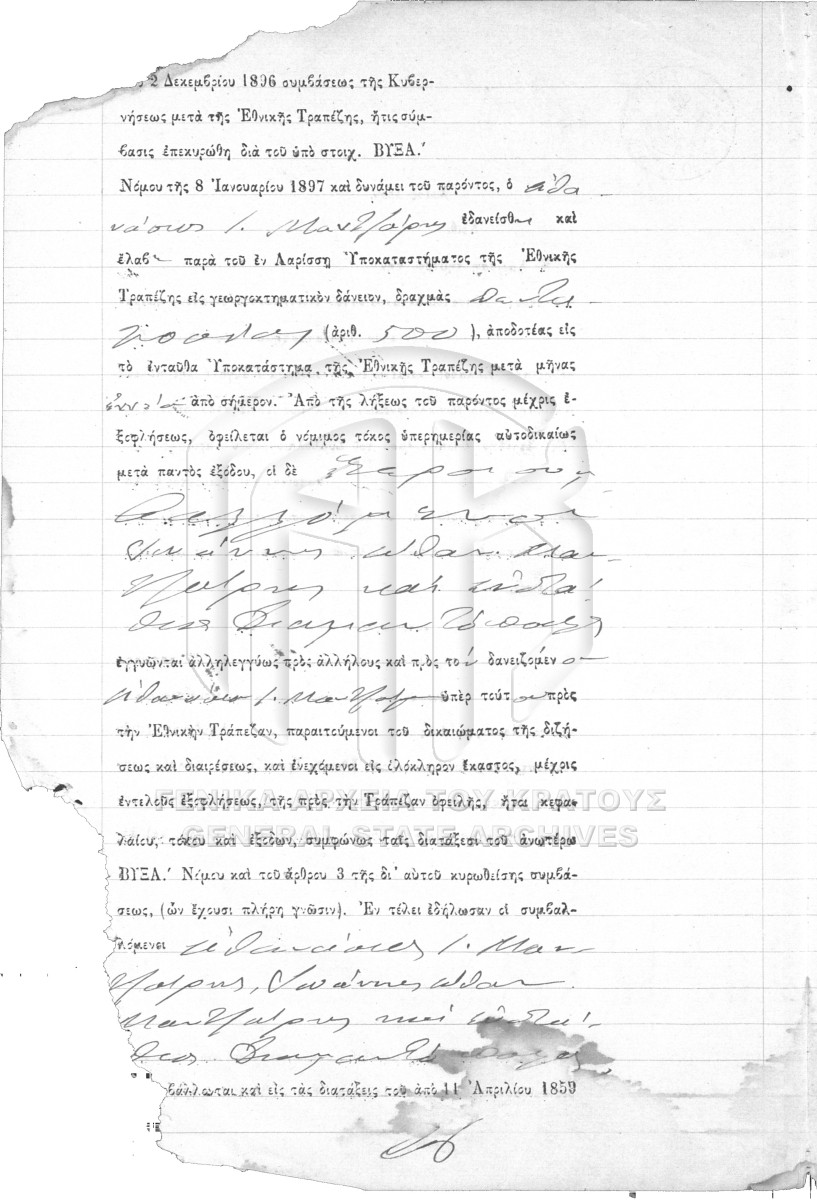 2 Δεκεμβρίου 1896 συμβάσεως τῆς Κυβερ-
νήσεως μετὰ τῆς Ἐθνικῆς Τραπέζης, ἥτις σύμ-
βασις ἐπεκυρώθη διὰ τοῦ ὑπὸ στοιχ. ΒΥΞΑ.′
Νόμου τῆς 8 Ἰανουαρίου 1897 καὶ δυνάμει τοῦ παρόντος, ὁ Ἀθα-
νάσιος Ι. Μαντζάρης ἐδανείσθη καὶ
ἔλαβε παρὰ τοῦ ἐν Λαρίσση Ὑποκαταστήματος τῆς Ἐθνικῆς
Τραπέζης εἰς γεωργοκτηματικὸν δάνειον, δραχμὰς πεντα-
κοσίας (ἀριθ. 500), ἀποδοτέας εἰς
τὸ ἐνταῦθα Ὑποκατάστημα τῆς Ἐθνικῆς Τραπέζης μετὰ μῆνας
ἐννέα ἀπὸ σήμερον. Ἀπὸ τῆς λήξεως τοῦ παρόντος μέχρις ἐ-
ξοφλήσεως, ὀφείλεται ὁ νόμιμος τόκος ὑπερημερίας αὐτοδικαίως
μετὰ παντὸς ἐξόδου, οἱ δὲ ἕτεροι συμ-
βαλλόμενοι
Ἰωάννης Ἀθαν. Μαν-
τζάρης καὶ Εὐστά-
θιος
ἐγγυῶνται ἀλληλεγγύως πρὸς ἀλλήλους καὶ πρὸς τὸν δανειζόμενον
Ἀθανάσιον Ι. Μαντζάρην ὑπὲρ τούτου πρὸς
τὴν Ἐθνικὴν Τράπεζαν, παραιτούμενοι τοῦ δικαιώματος τῆς διζή-
σεως καὶ διαιρέσεως, καὶ ἐνεχόμενοι εἰς ὁλόκληρον ἕκαστος, μέχρις
ἐντελοῦς ἐξοφλήσεως, τῆς πρὸς τὴν Τράπεζαν ὀφειλῆς, ἤτοι κεφα-
λαίου, τόκου καὶ ἐξόδων, συμφώνως ταῖς διατάξεσι τοῦ ἀνωτέρω
ΒΥΞΑ.′ Νόμου καὶ τοῦ ἄρθρου 3 τῆς δι᾽ αὐτοῦ κυρωθείσης συμβά-
σεως, (ὧν ἔχουσι πλήρη γνῶσιν). Ἐν τέλει ἐδήλωσαν οἱ συμβαλ-
λόμενοι Ἀθανάσιος Ι. Μαν-
τζάρης, Ἰωάννης Ἀθαν.
Μαντζάρης καὶ Εὐστά-
θιος
βάλλωται καὶ εἰς τὰς διατάξεις τοῦ ἀπὸ 11 Ἀπριλίου 1859
ΓΕΝΙΚΑ ΑΡΧΕΙΑ ΤΟΥ ΚΡΑΤΟΥΣ
GENERAL STATE ARCHIVES